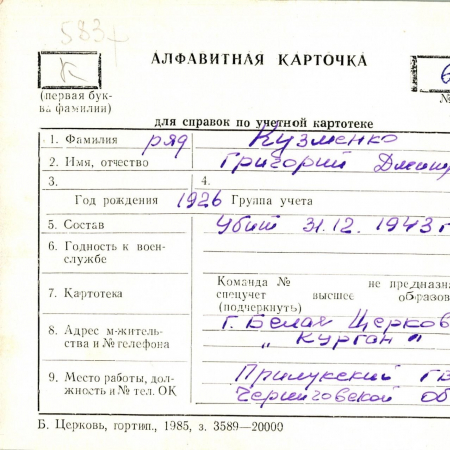 583
К
АЛФАВИТНАЯ КАРТОЧКА
6
(первая бук-
ва фамилии)
№
для справок по учетной картотеке
1. Фамилия ряд Кузменко
2. Имя, отчество Григорий Дмитр
3. 4.
Год рождения 1926 Группа учета
5. Состав Убит 31.12.1943 г
6. Годность к воен-
службе
7. Картотека
Команда № не предназна
спецучет высшее образов
(подчеркнуть)
8. Адрес м-житель-
ства и № телефона
г. Белая Церков
„ Курган "
9. Место работы, дол-
жность и № тел. ОК
Прилукский ГВ
Черниговской об
Б. Церковь, гортип., 1985, з. 3589—20000